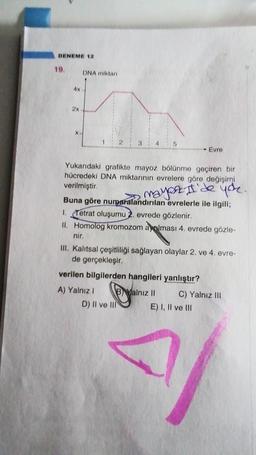 DENEME 12
19.
DNA miktarı
4x
2x
x
1 2 3 4 5
Evre
Yukarıdaki grafikte mayoz bölünme geçiren bir
hücredeki DNA miktarının evrelere göre değişimi
verilmiştir.
mayoz II'de yok.
Buna göre numaralandırılan evrelerle ile ilgili;
I. Tetrat oluşumu 2. evrede gözlenir.
II. Homolog kromozom ayrılması 4. evrede gözle-
nir.
III. Kalıtsal çeşitliliği sağlayan olaylar 2. ve 4. evre-
de gerçekleşir.
verilen bilgilerden hangileri yanlıştır?
A) Yalnız I B) Yalnız II C) Yalnız III
D) II ve III E) I, II ve III